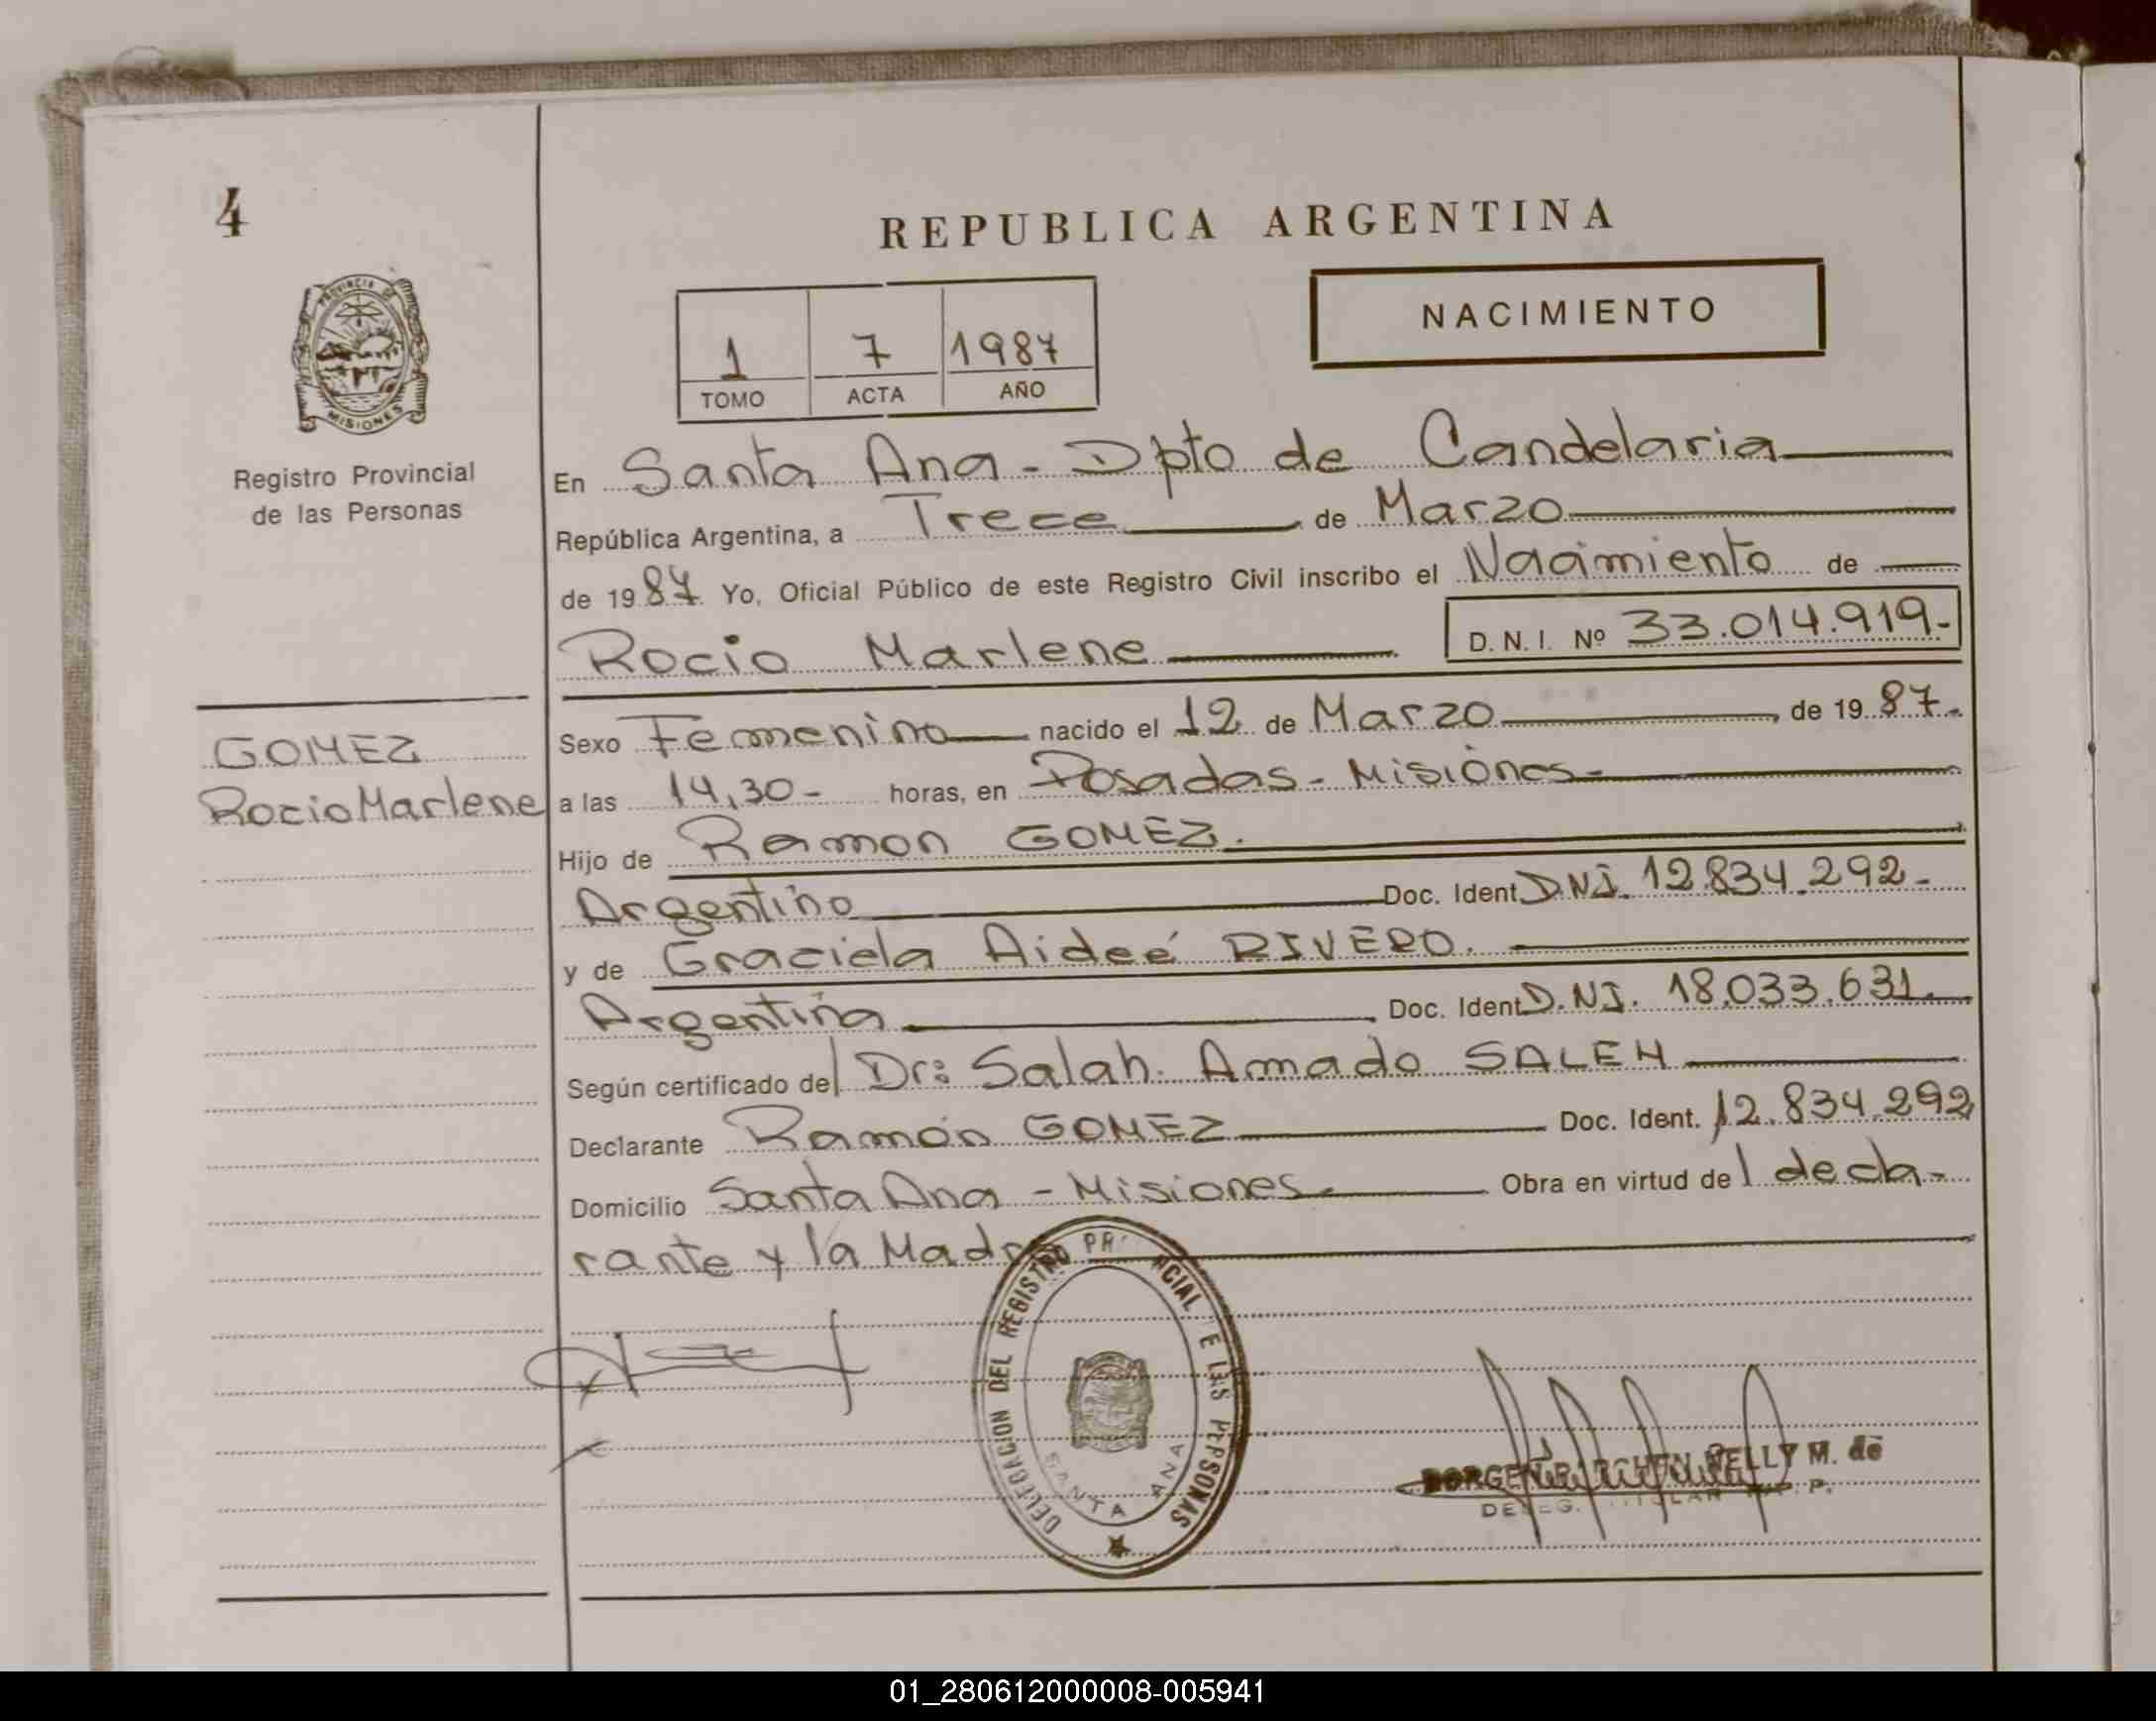 4
REPUBLICA ARGENTINA
PROVINCIA DE
MISIONES
Registro Provincial
de las Personas
1 7 1987
TOMO ACTA AÑO
NACIMIENTO
En Santa Ana - Dpto de Candelaria
República Argentina, a Trece de Marzo
de 1987 Yo, Oficial Público de este Registro Civil inscribo el Nacimiento de
Rocio Marlene D. N. I. Nº 33.014.919-
GOMEZ
Rocio Marlene
Sexo Femenino nacido el 12 de Marzo de 1987.
a las 14,30- horas, en Posadas - Misiónes-
Hijo de Ramon GOMEZ.
Argentino Doc. Ident D.NI. 12.834.292-
y de Graciela Aideé RIVERO.
Argentina Doc. Ident D.NI. 18.033.631.
Según certificado del Dr: Salah. Amado SALEH
Declarante Ramón GOMEZ Doc. Ident. 12.834.292
Domicilio Santa Ana - Misiones. Obra en virtud del decla-
rante y la Madre
DELEGACION DEL REGISTRO PR CIAL E LAS PERSONAS
SANTA ANA
NELLY M. de
01_280612000008-005941